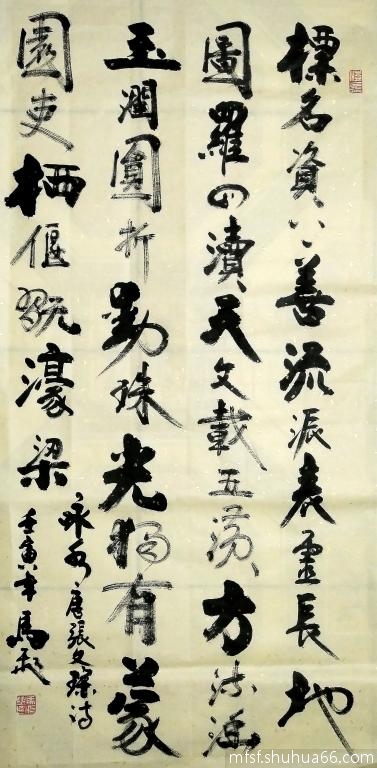 標名資上善流派表靈長地
圖羅四瀆天文載五潢方流涵
玉潤圓折動珠光獨有蒙
園吏栖偃翫濠梁
詠水唐張文琮詩
壬寅年馬
mfsf.shuhua66.com